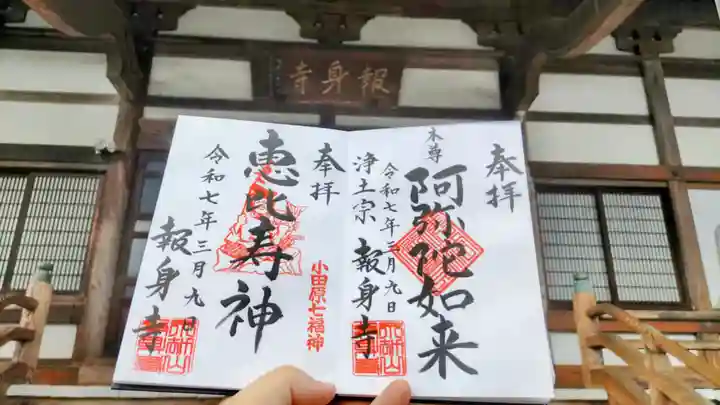 報身寺
奉拝
本尊
阿弥陀如来
令和七年三月九日
浄土宗 報身寺
奉拝
小田原七福神
恵比寿神
令和七年三月九日
報身寺